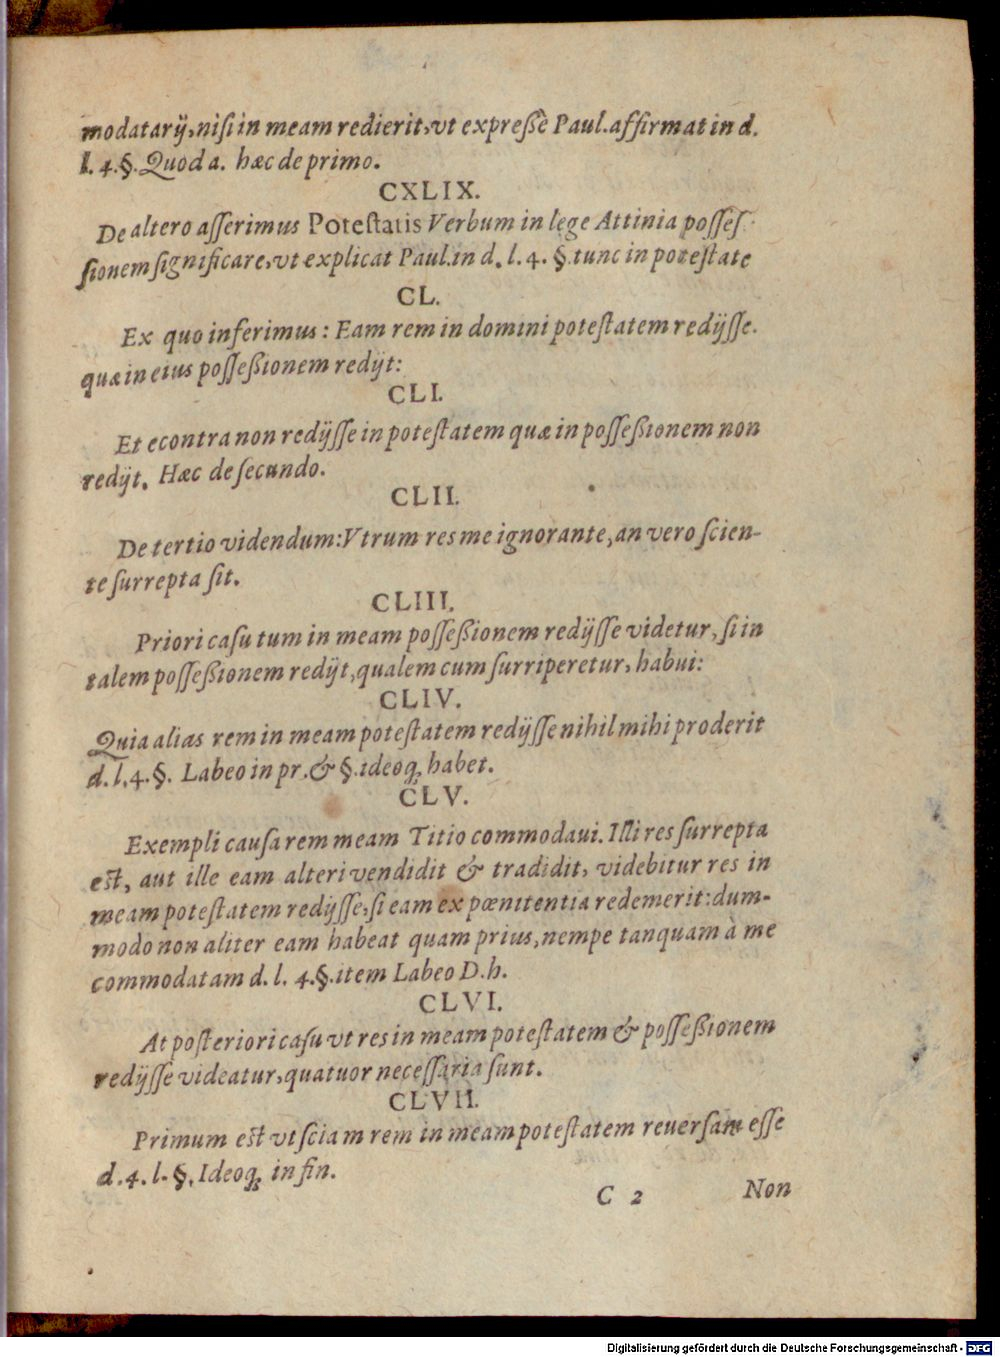 modatarij, nisi in meam redierit, vt expreßè Paul. affirmat in d.
l. 4. §. Quod a. hæc de primo.
CXLIX.
De altero asserimus Potestatis Verbum in lege Attinia posses-
sionem significare, vt explicat Paul. in d. l. 4. §. tunc in potestate
CL.
Ex quo inferimus: Eam rem in domini potestatem redijsse.
quæ in eius posseßionem redijt:
CLI.
Et econtra non redijsse in potestatem quæ in posseßionem non
redijt. Hæc de secundo.
CLII.
De tertio videndum: Vtrum res me ignorante, an vero scien-
te surrepta sit.
CLIII.
Priori casu tum in meam posseßionem redijsse videtur, si in
talem posseßionem redijt, qualem cum surriperetur, habui:
CLIV.
Quia alias rem in meam potestatem redijsse nihil mihi proderit
d. l. 4. §. Labeo in pr. & §. ideoq; habet.
CLV.
Exempli causa rem meam Titio commodaui. Illi res surrepta
est, aut ille eam alteri vendidit & tradidit, videbitur res in
meam potestatem redijsse, si eam ex pœnitentia redemerit: dum-
modo non aliter eam habeat quam prius, nempe tanquam à me
commodatam d. l. 4. §. item Labeo D. h.
CLVI.
At posteriori casu vt res in meam potestatem & posseßionem
redijsse videatur, quatuor necessaria sunt.
CLVII.
Primum est vt sciam rem in meam potestatem reuersam esse
d. 4. l. §. Ideoq; in fin.
C 2 Non
Digitalisierung gefördert durch die Deutsche Forschungsgemeinschaft - DFG